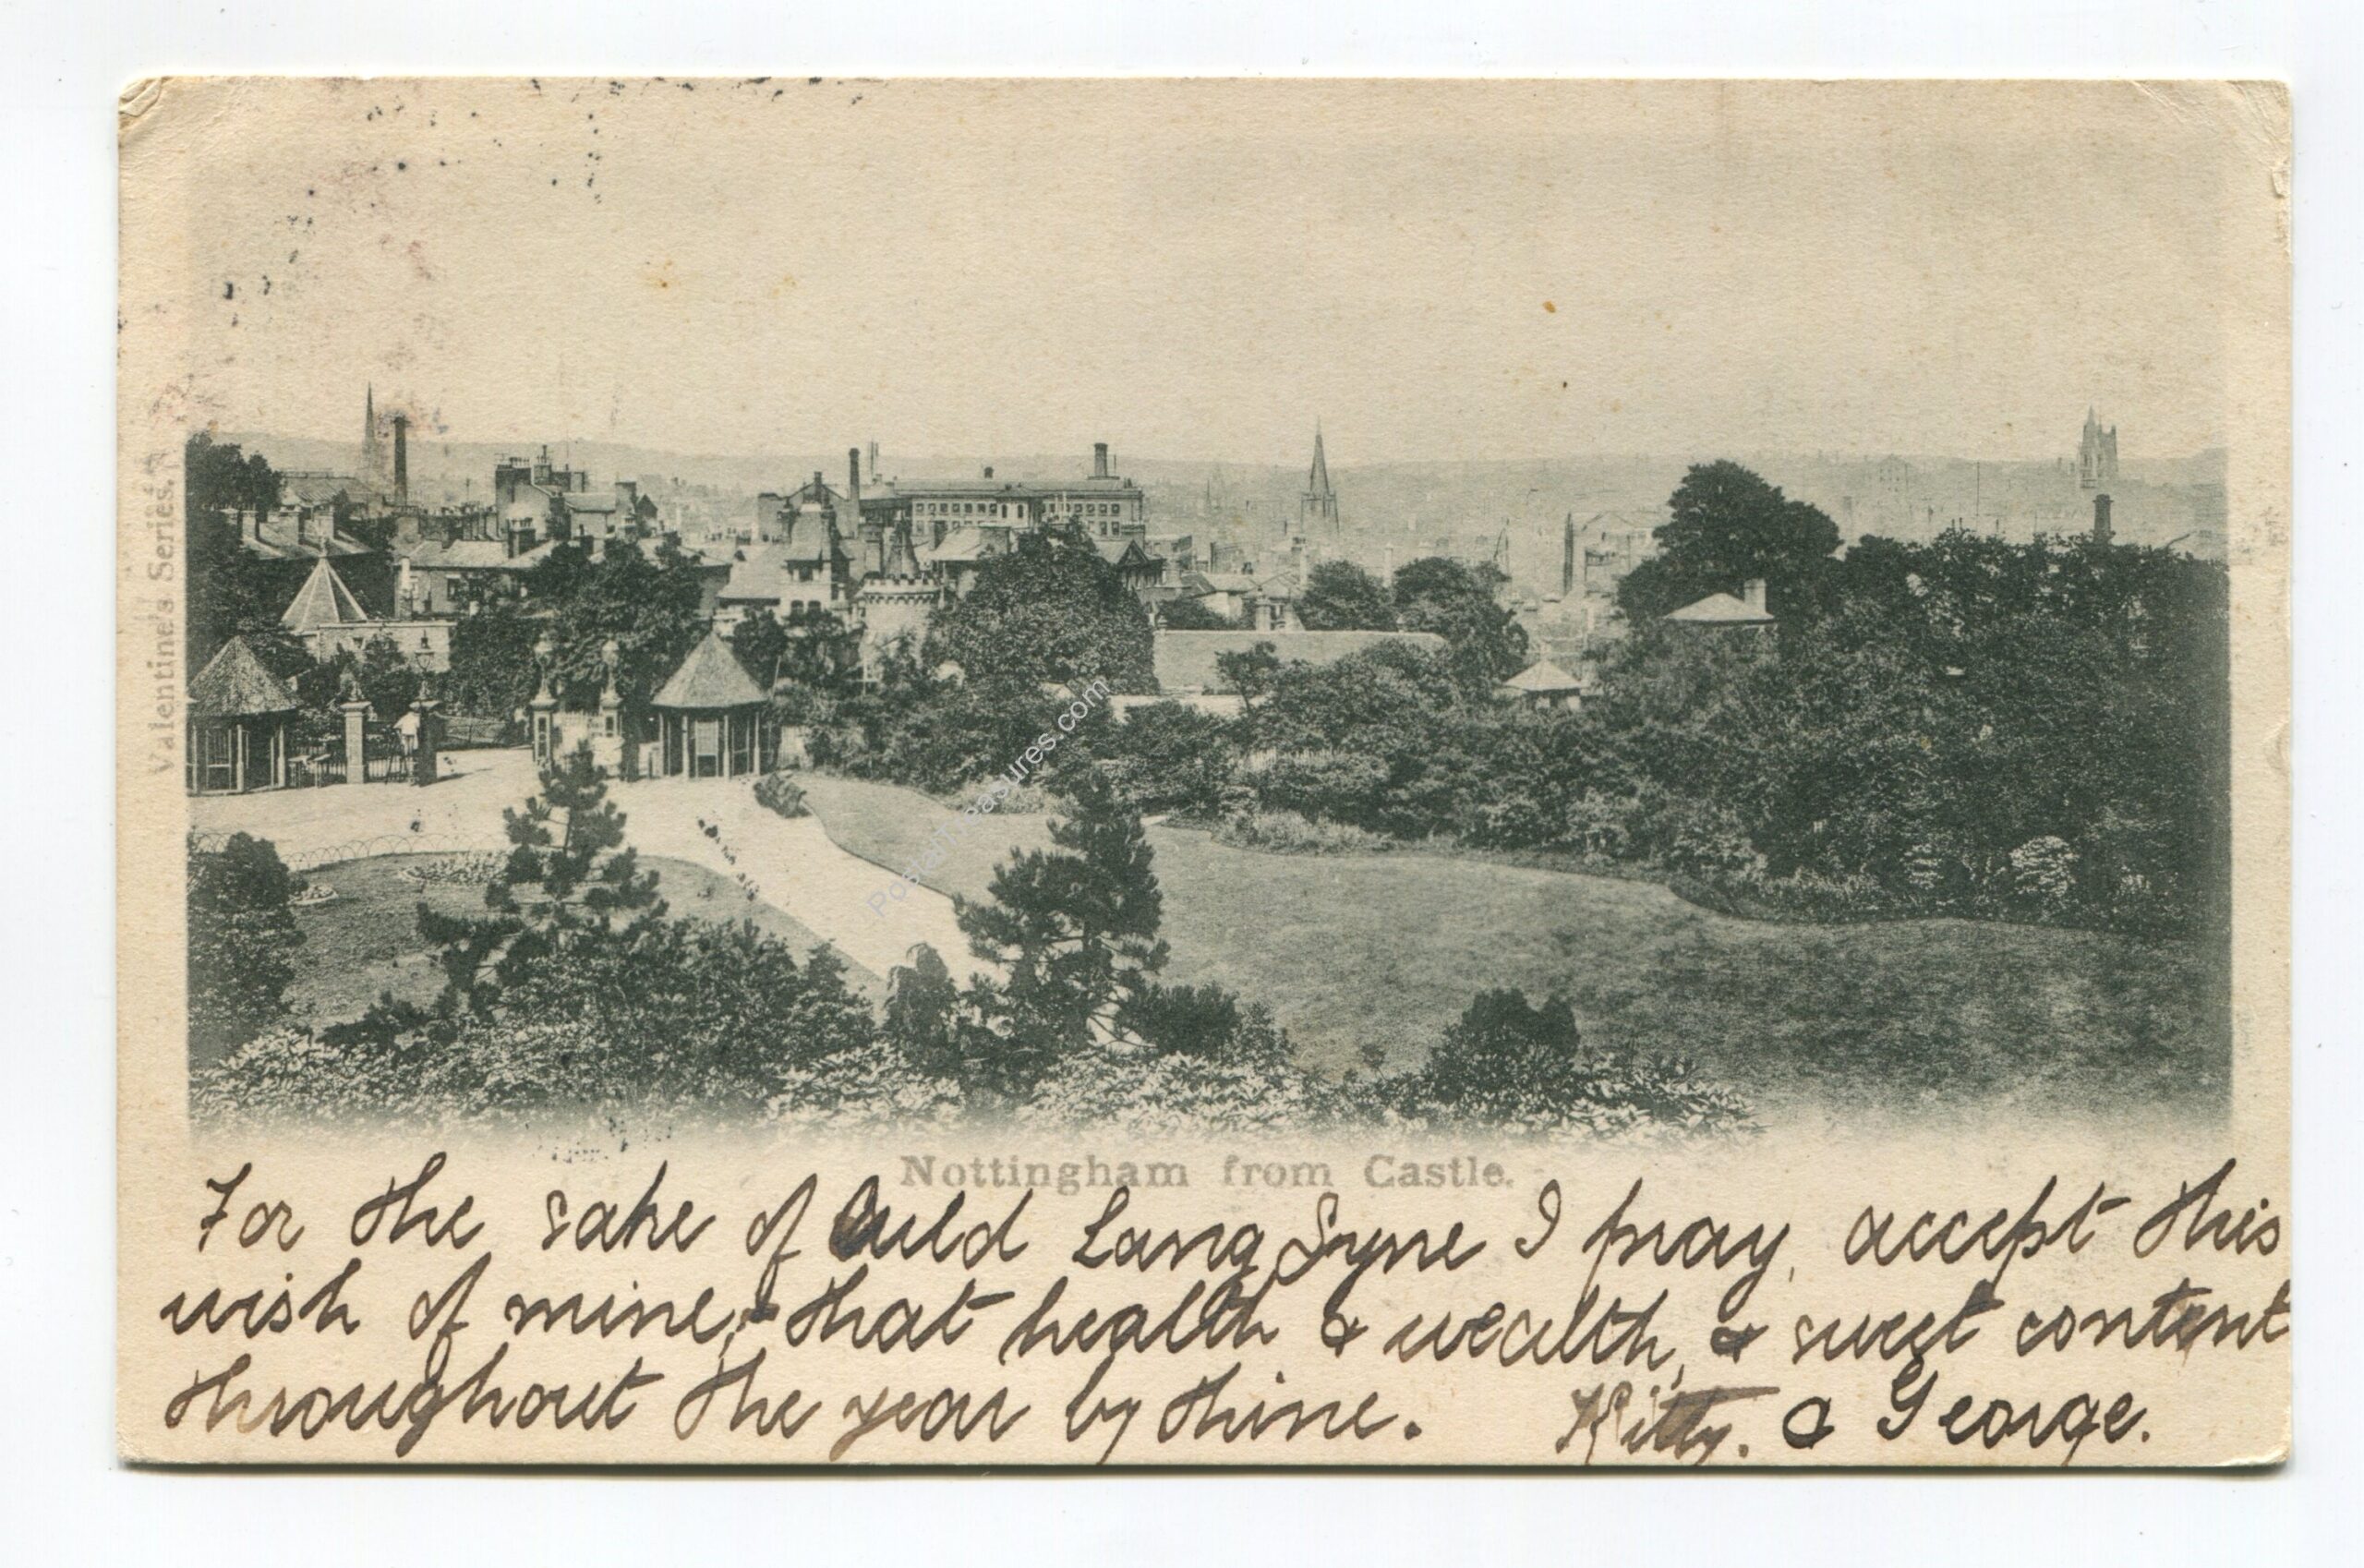 Valentine's Series.
PostalTreasures.com
Nottingham from Castle.
For the sake of Auld Lang Syne I pray, accept this
wish of mine, - that health & wealth, & sweet content
throughout the year by thine. Kitty. & George.